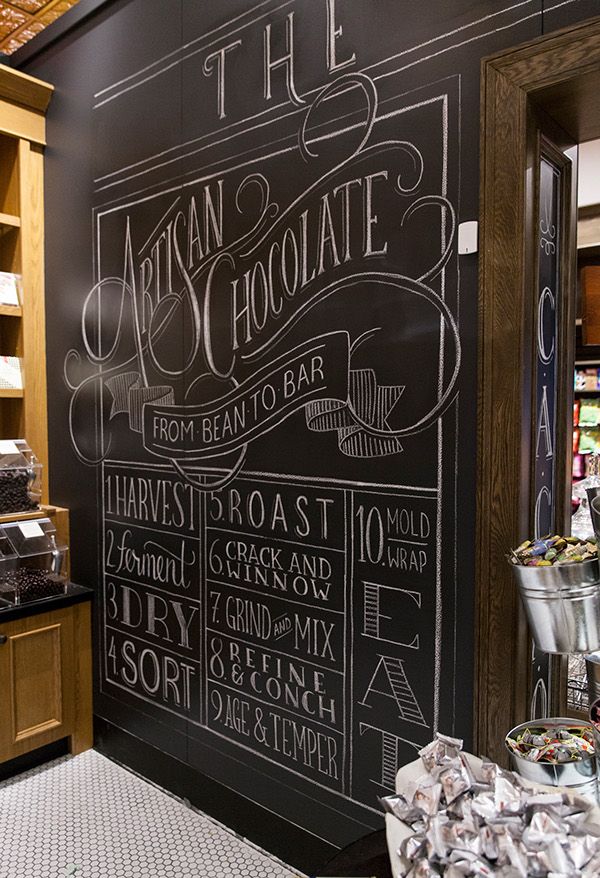 THE
ARTISAN
CHOCOLATE
FROM · BEAN · TO · BAR
1. HARVEST
2. ferment
3. DRY
4. SORT
5. ROAST
6. CRACK AND
WINNOW
7. GRIND AND MIX
8. REFINE
& CONCH
9. AGE & TEMPER
10. MOLD
WRAP
EAT
CACAO